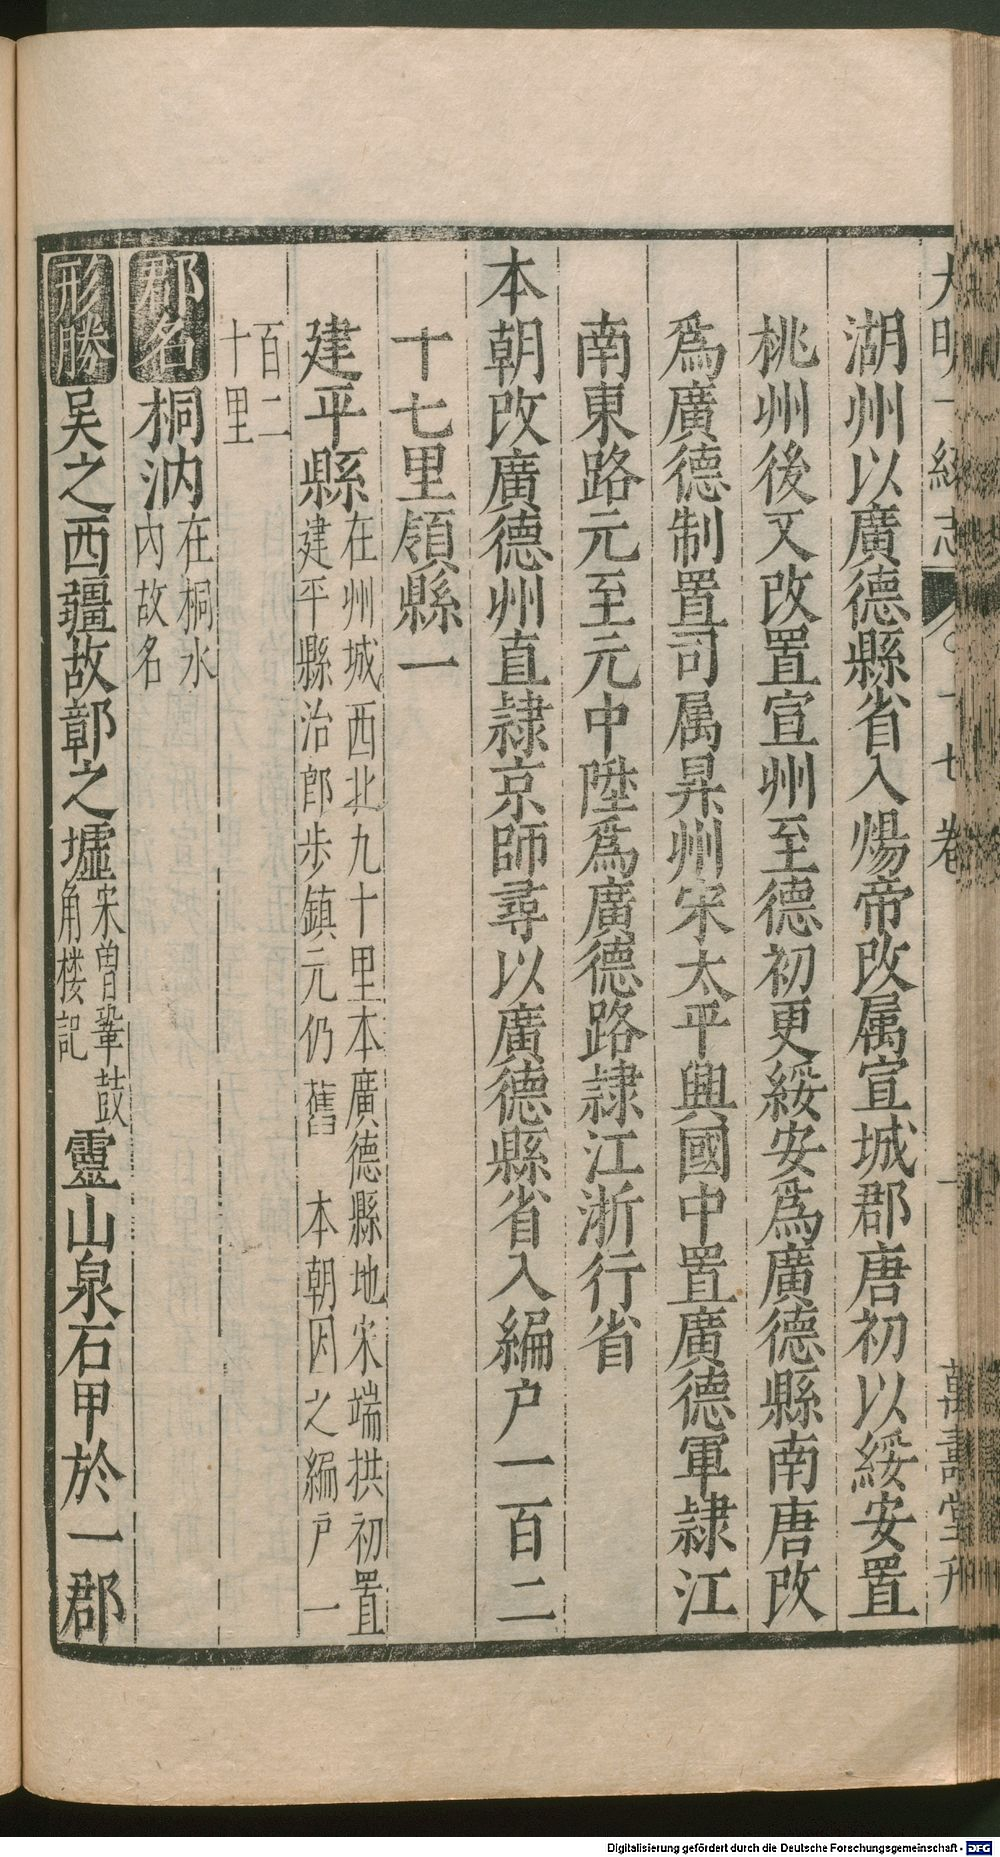 大明一統志 十七卷 一 萬壽堂刊
湖州以廣德縣省入煬帝改属宣城郡唐初以綏安置
桃州後又改置宣州至德初更綏安爲廣德縣南唐改
爲廣德制置司属昇州宋太平興國中置廣德軍隷江
南東路元至元中陞爲廣德路隷江浙行省
本朝改廣德州直隷京師尋以廣德縣省入編户一百二
十七里領縣一
建平縣在州城西北九十里本廣德縣地宋端拱初置
建平縣治郎步鎮元仍舊 本朝因之編户一
百二
十里
郡名桐汭在桐水
內故名
形勝吴之西疆故鄣之墟宋曽鞏鼓
角楼記靈山泉石甲於一郡
Digitalisierung gefördert durch die Deutsche Forschungsgemeinschaft - DFG